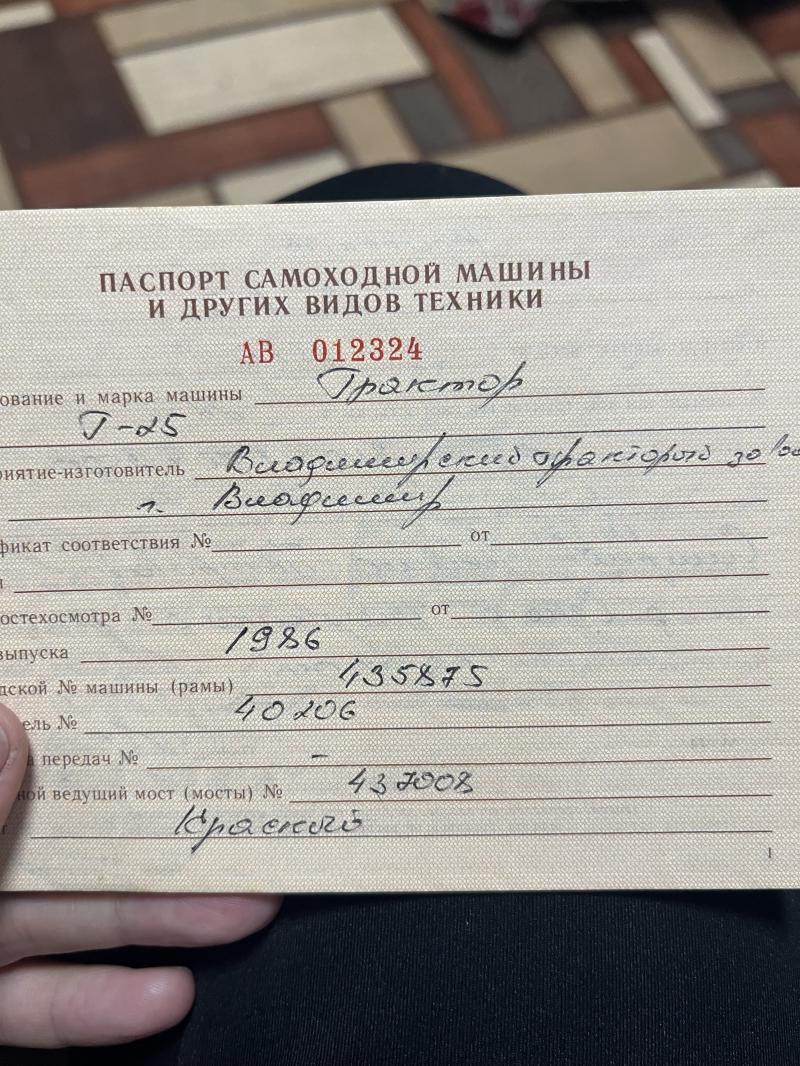 ПАСПОРТ САМОХОДНОЙ МАШИНЫ
И ДРУГИХ ВИДОВ ТЕХНИКИ
АВ 012324
ование и марка машины Трактор
Т-25
риятие-изготовитель Владимирский тракторый завод
г. Владимир
фикат соответствия № от
остехосмотра № от
выпуска 1986
дской № машины (рамы) 435875
ель № 40206
а передач № –
ной ведущий мост (мосты) № 437008
Красный
1